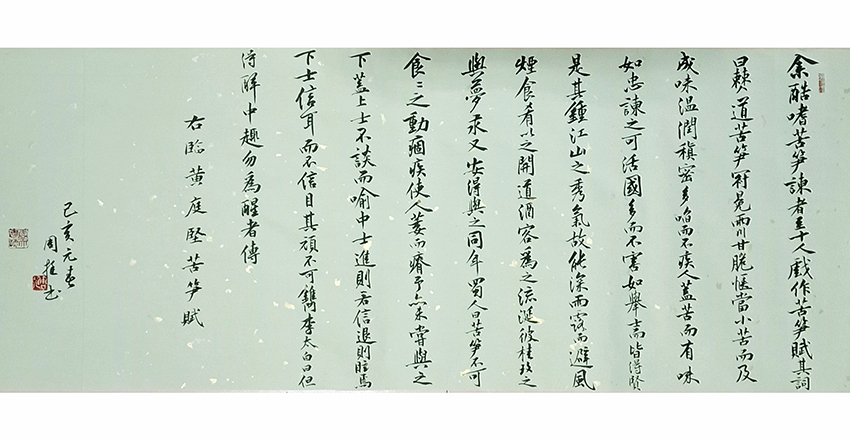 余酷嗜苦笋諫者至十人戲作苦笋賦其詞
曰僰道苦笋冠冕兩川甘脆愜當小苦而及
成味溫潤稹密多啗而不疾人蓋苦而有味
如忠諫之可活國多而不害如舉士而皆得賢
是其鍾江山之秀氣故能深雨露而避風
煙食肴以之開道酒客為之流涎彼桂玫之
與夢汞又安得與之同年蜀人曰苦笋不可
食〻之動痼疾使人萎而瘠予亦未嘗與之
下蓋上士不談而喻中士進則若信退則眩焉
下士信耳而不信目其頑不可鐫李太白曰但
得醉中趣勿為醒者傳
右臨黃庭堅苦笋賦
己亥元春
周